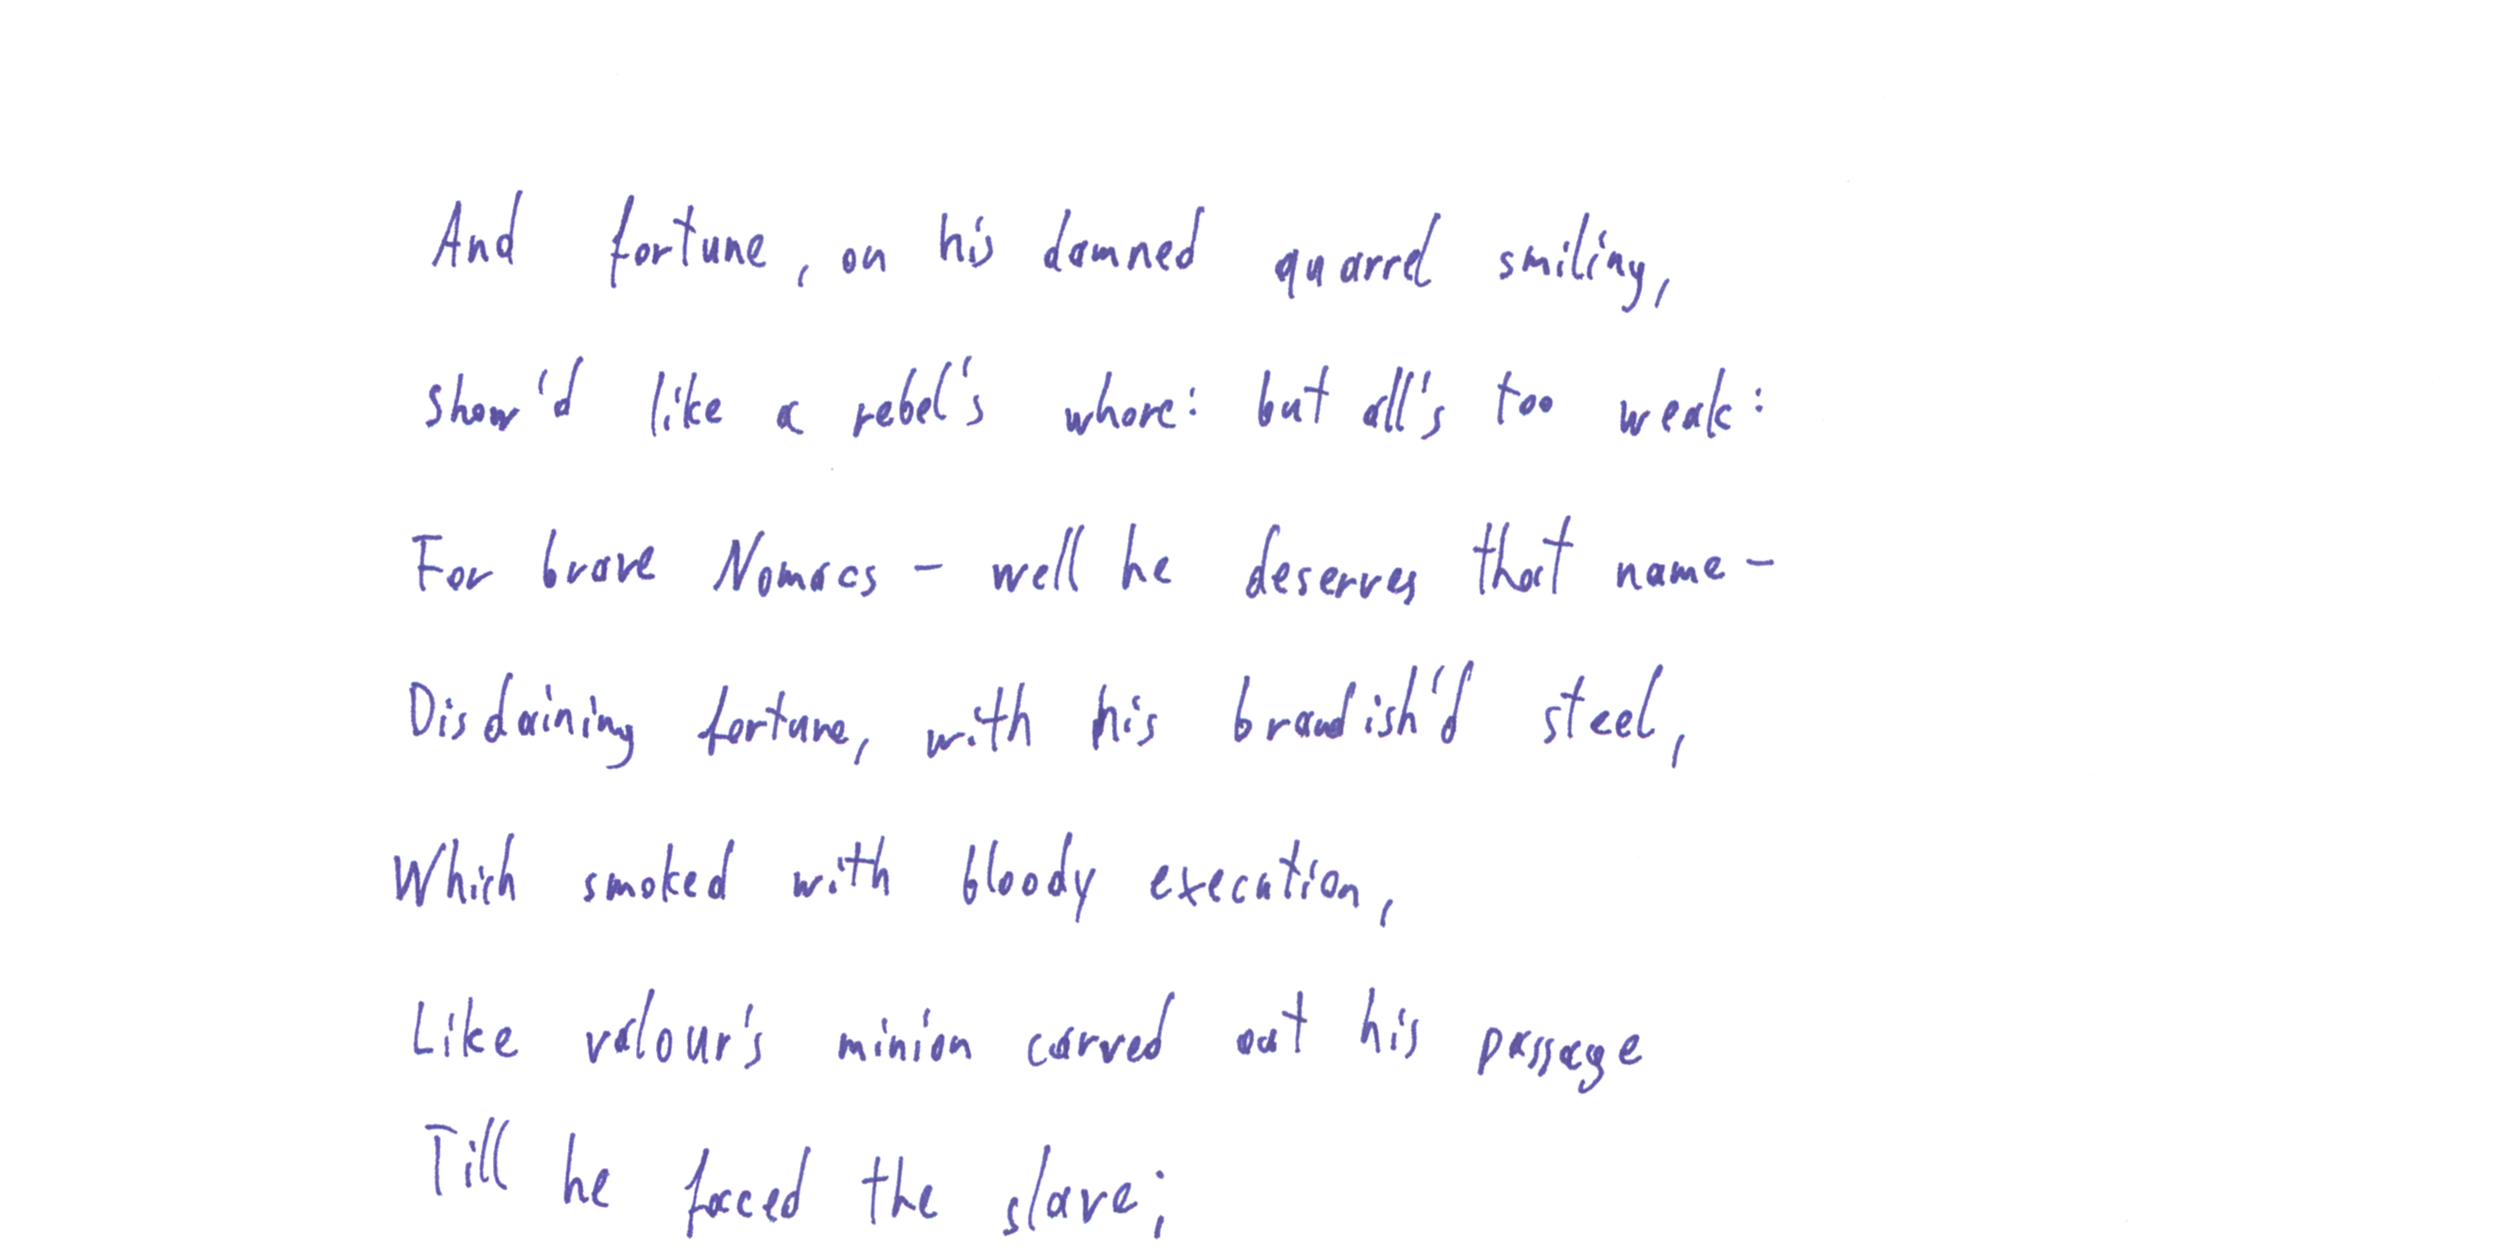 And fortune, on his damned quarrel smiling,
show'd like a rebel's whore: but all's too weak:
For brave Nomacs - well he deserves that name -
Disdaining fortune, with his brandish'd steel,
Which smoked with bloody execution,
Like valour's minion carved out his passage
Till he faced the slave;